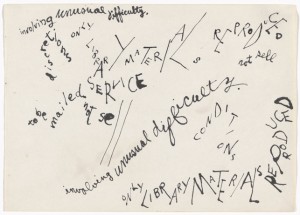 involving unusual difficulty.
discretions
ONLY
LIBRARY MATERIALS
REPRODUCED
not sell
to be
mailed
SERVICE
at
se
CONDITIONS
involving unusual difficulty.
ONLY LIBRARY MATERIALS
REPRODUCED